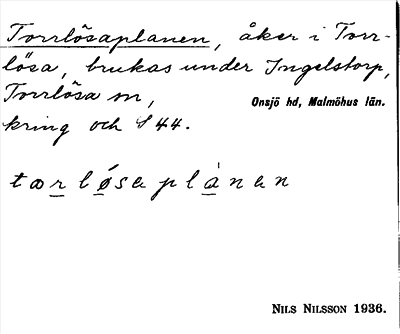 Torrlösaplanen, åker i Torr-
lösa, brukas under Ingelstorp,
Torrlösa sn, Onsjö hd, Malmöhus län.
kring och S 44.
tɷrlø̀saplànan
NILS NILSSON 1936.